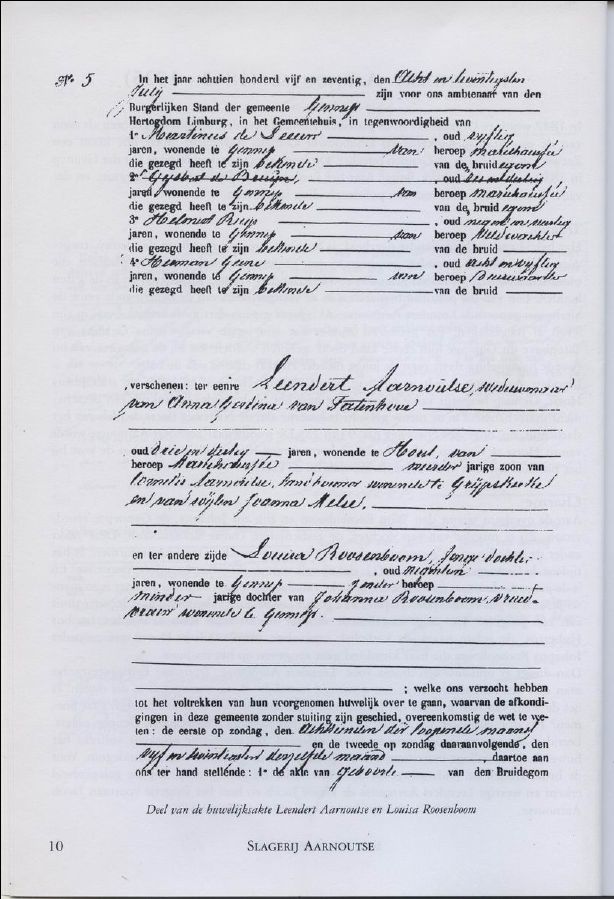 No. 5 In het jaar achttien honderd vijf en zeventig, den Acht en twintigsten
July zijn voor ons ambtenaar van den
Burgerlijken Stand der gemeente Gennep
Hertogdom Limburg, in het Gemeentehuis, in tegenwoordigheid van
1e Martinus de Leeuw , oud vijftig
jaren, wonende te Gennep van beroep marechaussée
die gezegd heeft te zijn bekende van de bruidegom
2e Gysbert de Bruijn, , oud
jaren, wonende te Gennep van beroep marechaussée
die gezegd heeft te zijn bekende van de bruidegom
3e Helmus , oud negen en veertig
jaren, wonende te Gennep van beroep Veldwachter
die gezegd heeft te zijn bekende van de bruid
4e Herman , oud acht en vijftig
jaren, wonende te Gennep van beroep
die gezegd heeft te zijn bekende van de bruid
verschenen: ter eenre Leendert Aarnoutse, Weduwnaar
van Anna van
oud drie en veertig jaren, wonende te Hout, van
beroep Marechaussée meerder jarige zoon van
Cornelis Aarnoutse, landbouwer wonende te Grijpskerke
en van wijlen Joanna Melse,
en ter andere zijde Louisa Roosenboom, Jonge dochter
, oud negentien
jaren, wonende te Gennep zonder beroep
minder jarige dochter van Johanna Roosenboom, vroed-
vrouw wonende te Gennep.
; welke ons verzocht hebben
tot het voltrekken van hun voorgenomen huwelijk over te gaan, waarvan de afkondi-
gingen in deze gemeente zonder stuiting zijn geschied, overeenkomstig de wet te we-
ten: de eerste op zondag, den Achttienden der loopende maand
en de tweede op zondag daaraanvolgende, den
vijf en twintigsten derzelfde maand , daartoe aan
ons ter hand stellende: 1e de akte van Geboorte van den Bruidegom
Deel van de huwelijksakte Leendert Aarnoutse en Louisa Roosenboom
10 SLAGERIJ AARNOUTSE